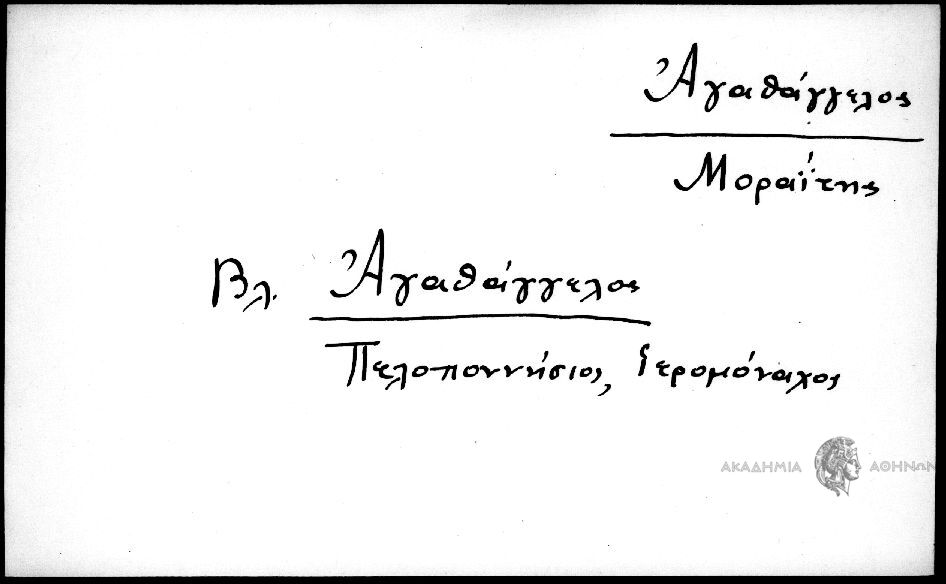 Ἀγαθάγγελος
Μοραΐτης
Βλ. Ἀγαθάγγελος
Πελοποννήσιος, ἱερομόναχος
ΑΚΑΔΗΜΙΑ ΑΘΗΝΩΝ